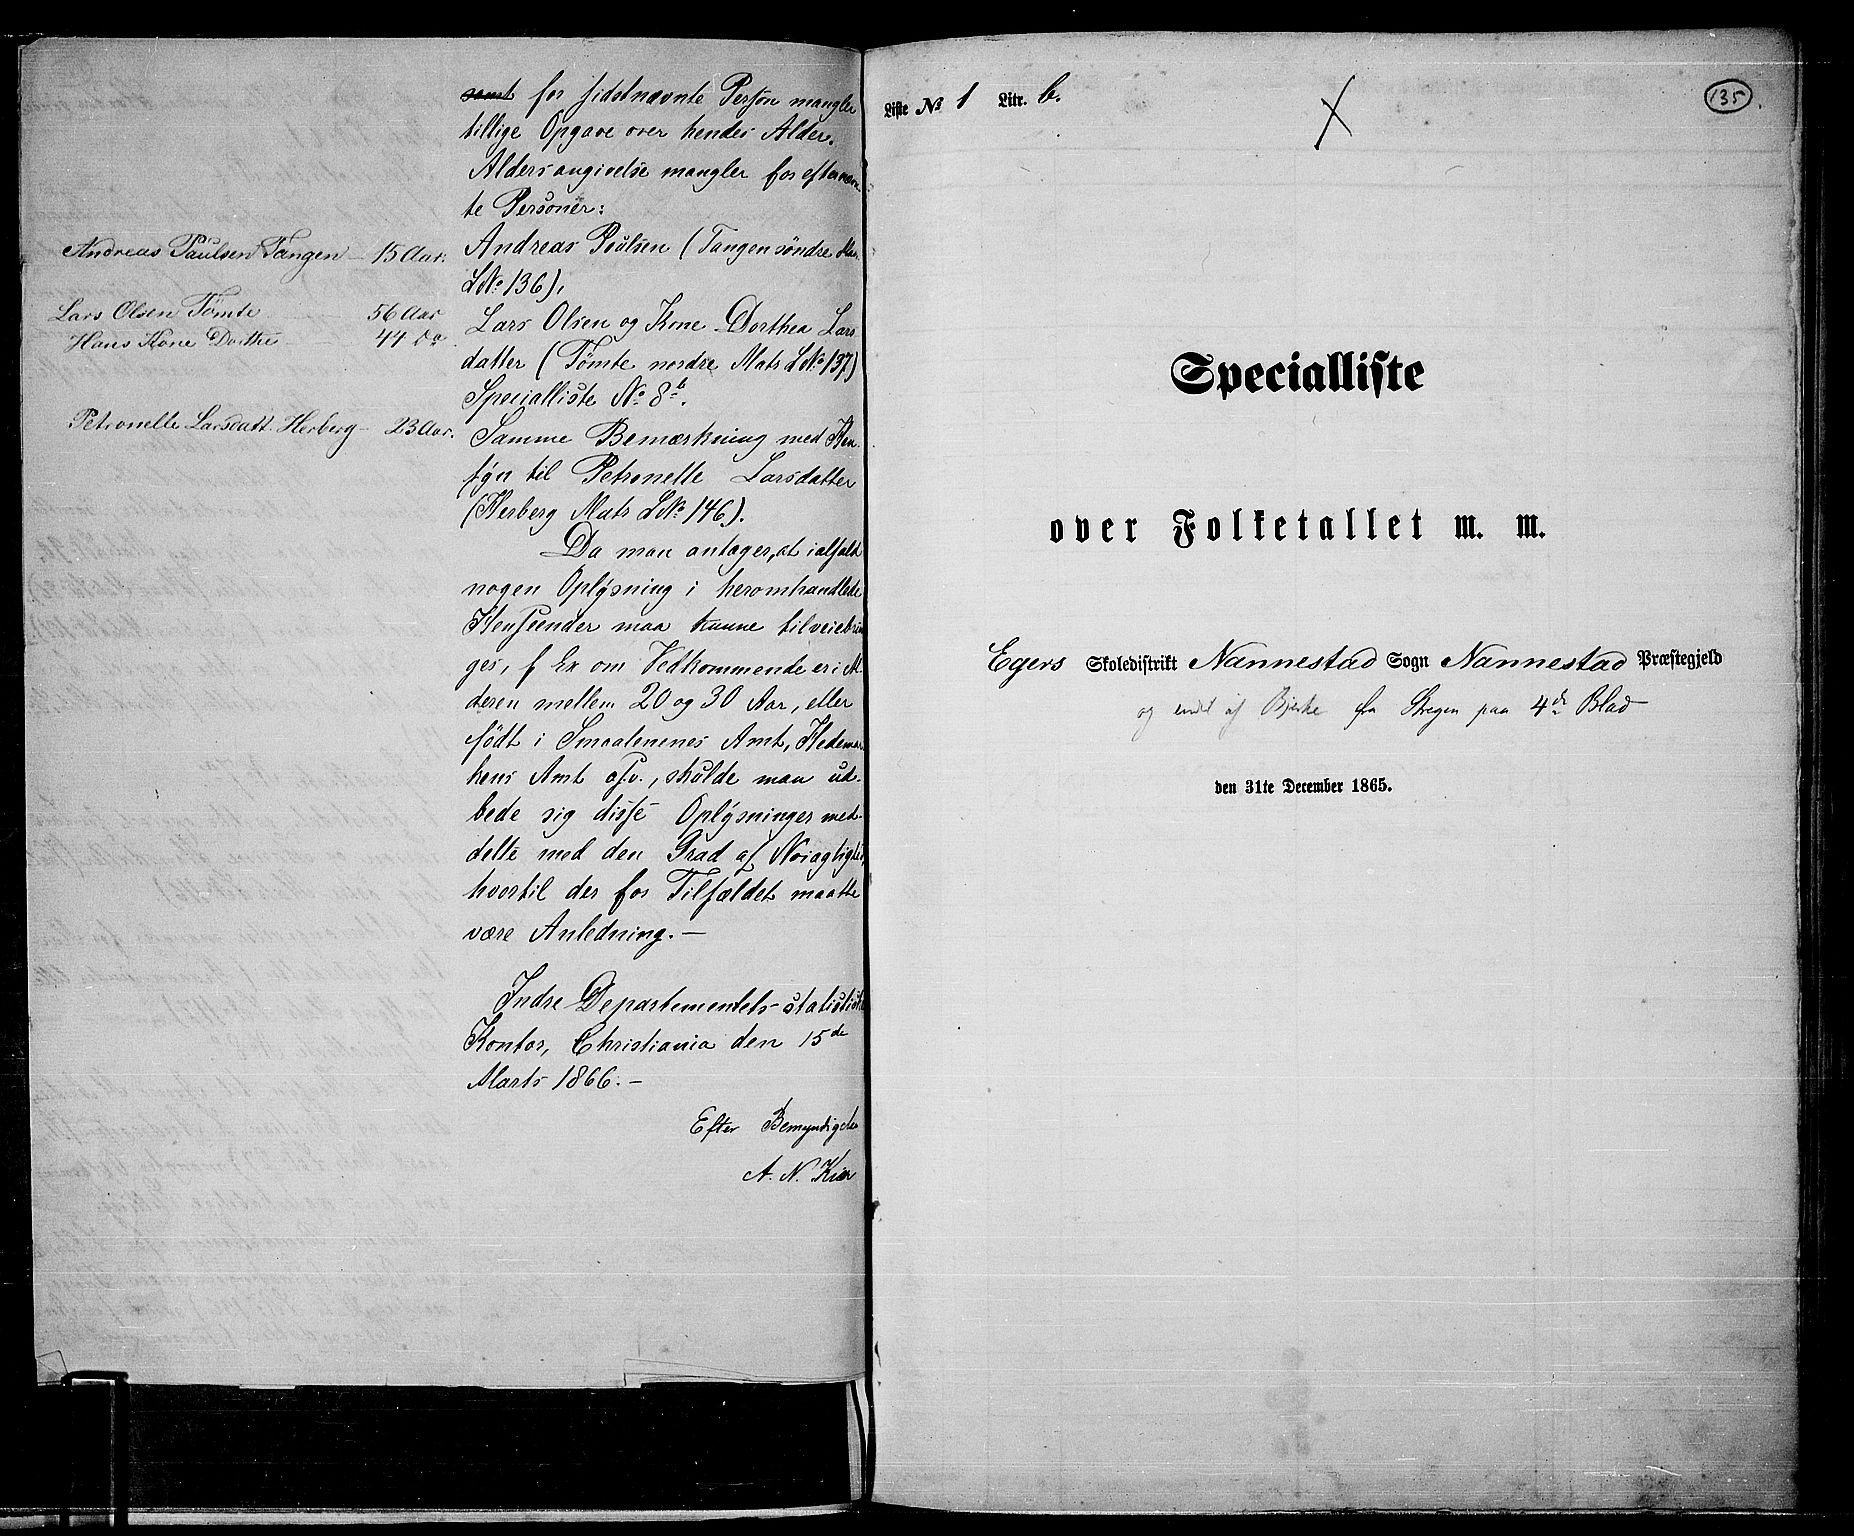 for sidstnævnte Person mangler
tillige Opgave over hendes Alder.
Aldersangivelse mangler for efternævn
te Personer:
Andreas Paulsen Tangen — 15 Aar.
Andreas Poulsen (Tangen søndre Mat.
LNo 136),
Lars Olsen Tømte 56 Aar
Hans Kone Dorthe 44 do
Lars Olsen og Kone Dorthea Lars
datter (Tømte nordre Mats LNo 137)
Specialliste No 8b.
Petronelle Larsdatt. Herberg — 23 Aar.
Samme Bemærkning med Hen
syn til Petronelle Larsdatter
(Herberg Mats LNo 146).
Da man antager, at ialfald
nogen Oplysning i heromhandlede
Henseender maa kunne tilveiebrin
ges, f Ex om Vedkommende er i Al
deren mellem 20 og 30 Aar, eller
født i Smaalenenes Amt, Hedemar
kens Amt osv., skulde man ud-
bede sig disse Oplysninger med-
delte med den Grad af Nøiagtighed,
hvortil der for Tilfældet maatte
være Anledning. —
Indre Departementets statistiske
Kontor, Christiania den 15de
Marts 1866. —
Efter Bemyndigelse
A. N. Kiær
Liste No 1 Litr. b.
135
Specialliste
over Folketallet m. m.
Egers Skoledistrikt Nannestad Sogn Nannestad Præstegjeld
og endel af Bjerke fra Stregen paa 4de Blad
den 31te December 1865.